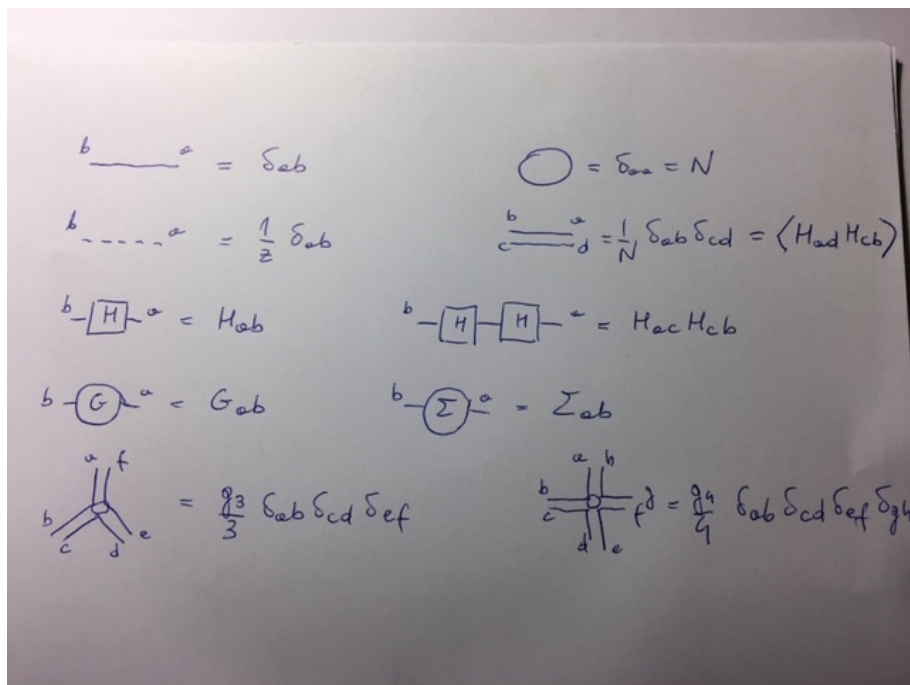 b a = δab
= δaa = N
b a = 1/z δab
b a c d = 1/N δab δcd = ⟨Had Hcb⟩
b H a = Hab
b H H a = Hac Hcb
b G a = Gab
b Σ a = Σab
a f b c d e = g3/3 δab δcd δef
a h b c d e f g = g4/4 δab δcd δef δgh